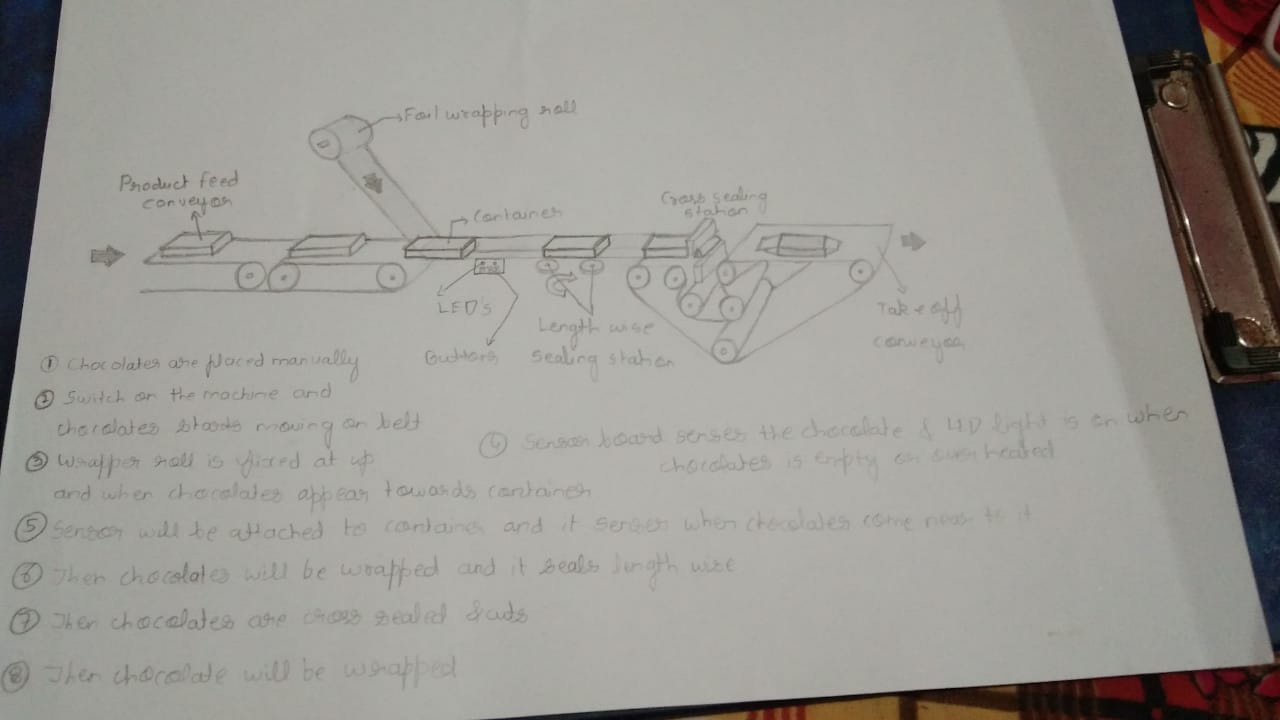 Foil wrapping roll
Product feed
conveyor
Container
Cross sealing
station
LED's
Buttons
Length wise
sealing station
Take off
conveyor
① Chocolates are placed manually
② Switch on the machine and
chocolates starts moving on belt
③ Wrapper roll is fixed at up
and when chocolates appear towards container
④ Sensor board senses the chocolate & LED light is on when
chocolates is empty or over heated
⑤ Sensor will be attached to container and it senses when chocolates come near to it
⑥ Then chocolates will be wrapped and it seals length wise
⑦ Then chocolates are cross sealed & cuts
⑧ Then chocolate will be wrapped